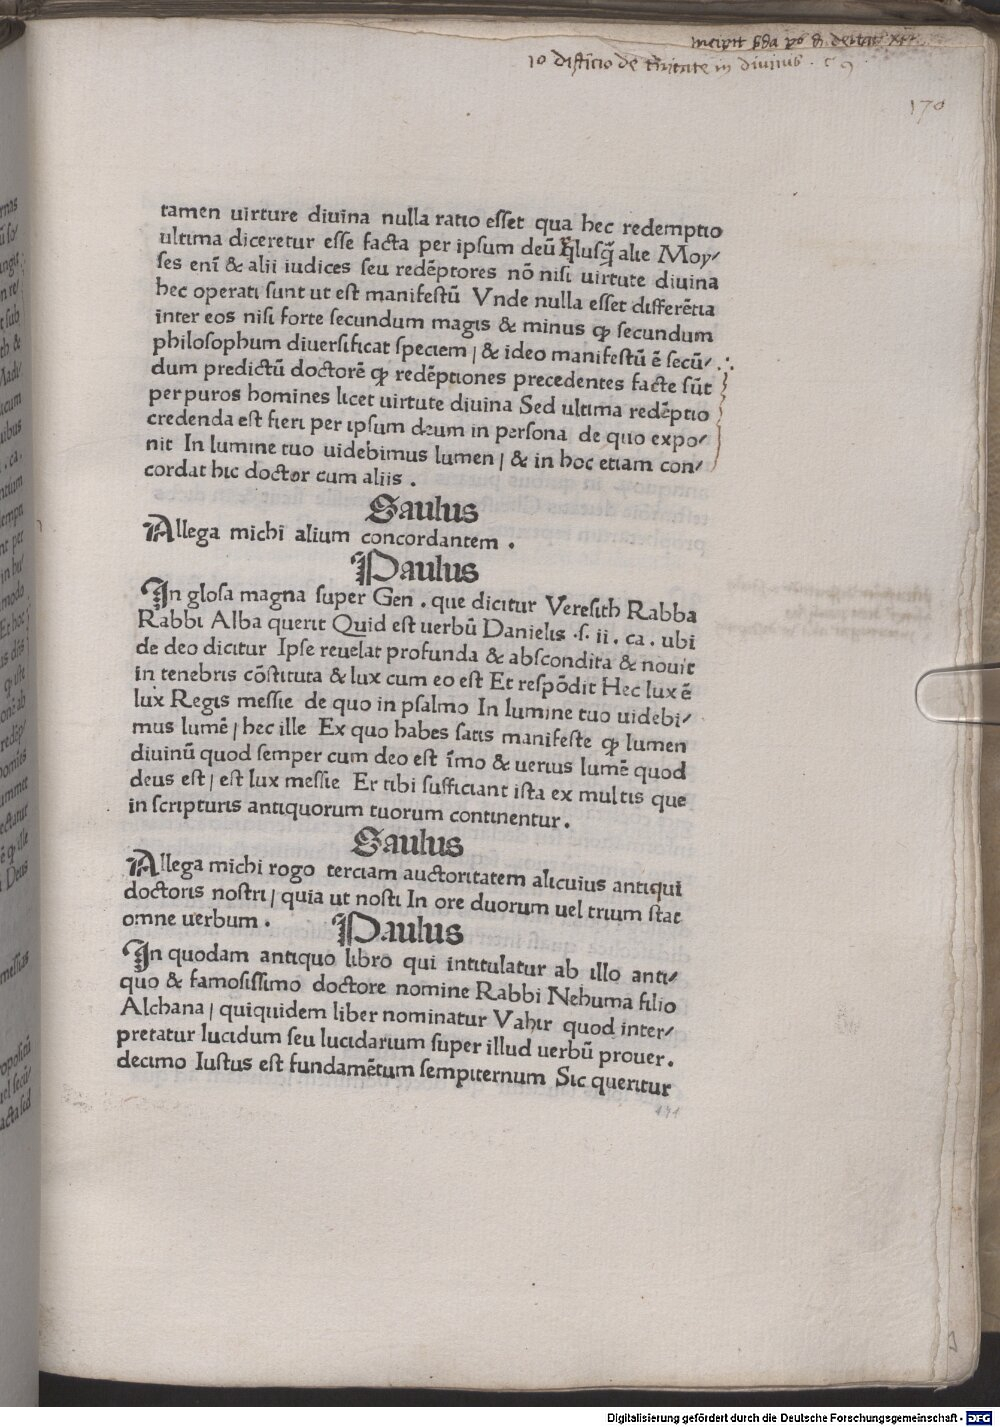 incipit
10 distinctio de trinitate in divinis . c 9
170
tamen uirture diuina nulla ratio esset qua hec redemptio
ultima diceretur esse facta per ipsum deū plusq̄ alie Moy⸗
ses enī & alii iudices seu redēptores nō nisi uirtute diuina
hec operati sunt ut est manifestū Vnde nulla esset differētia
inter eos nisi forte secundum magis & minus ꝙ secundum
philosophum diuersificat speciem / & ideo manifestū ē secū⸗
dum predictū doctorē ꝙ redēptiones precedentes facte sūt
per puros homines licet uirtute diuina Sed ultima redēptio
credenda est fieri per ipsum deum in persona de quo expo⸗
nit In lumine tuo uidebimus lumen / & in hoc etiam con⸗
cordat hic doctor cum aliis .
Saulus
Allega michi alium concordantem .
Paulus
In glosa magna super Gen . que dicitur Veresith Rabba
Rabbi Alba querit Quid est uerbū Danielis .s. ii . ca . ubi
de deo dicitur Ipse reuelat profunda & abscondita & nouit
in tenebris cōstituta & lux cum eo est Et respōdit Hec lux ē
lux Regis messie de quo in psalmo In lumine tuo uidebi⸗
mus lumē / hec ille Ex quo habes satis manifeste ꝙ lumen
diuinū quod semper cum deo est īmo & uerius lumē quod
deus est / est lux messie Et tibi sufficiant ista ex multis que
in scripturis antiquorum tuorum continentur .
Saulus
Allega michi rogo terciam auctoritatem alicuius antiqui
doctoris nostri / quia ut nosti In ore duorum uel trium stat
omne uerbum .
Paulus
In quodam antiquo libro qui intitulatur ab illo anti⸗
quo & famosissimo doctore nomine Rabbi Nehuma filio
Alchana / quiquidem liber nominatur Vahir quod inter⸗
pretatur lucidum seu lucidarium super illud uerbū prouer .
decimo Iustus est fundamētum sempiternum Sic queritur
Digitalisierung gefördert durch die Deutsche Forschungsgemeinschaft - DFG